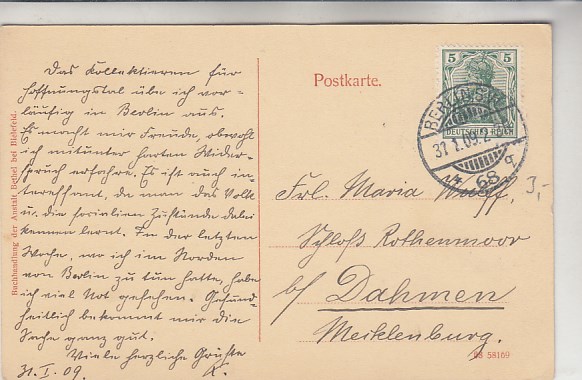 Das Kollektieren für
Hoffnungstal übe ich vor-
läufig in Berlin aus.
Es macht mir Freude, obwohl
ich mitunter harten Wider-
spruch erfahre. Es ist auch in-
teressant, da man das Volk
u. die sozialen Zustände dabei
kennen lernt. In der letzten
Woche, wo ich im Norden
von Berlin zu tun hatte, habe
ich viel Not gesehen. Gesund-
heitlich bekommt mir die
Sache ganz gut.
Viele herzliche Grüße
31. I. 09.
Buchhandlung der Anstalt Bethel bei Bielefeld.
Postkarte.
5 5
DEUTSCHES REICH
BERLIN S.W.
31.1.09.
68 q
Frl. Maria Wulff,
3,-
Schloß Rothenmoor
b/ Dahmen
Mecklenburg.
08 58169